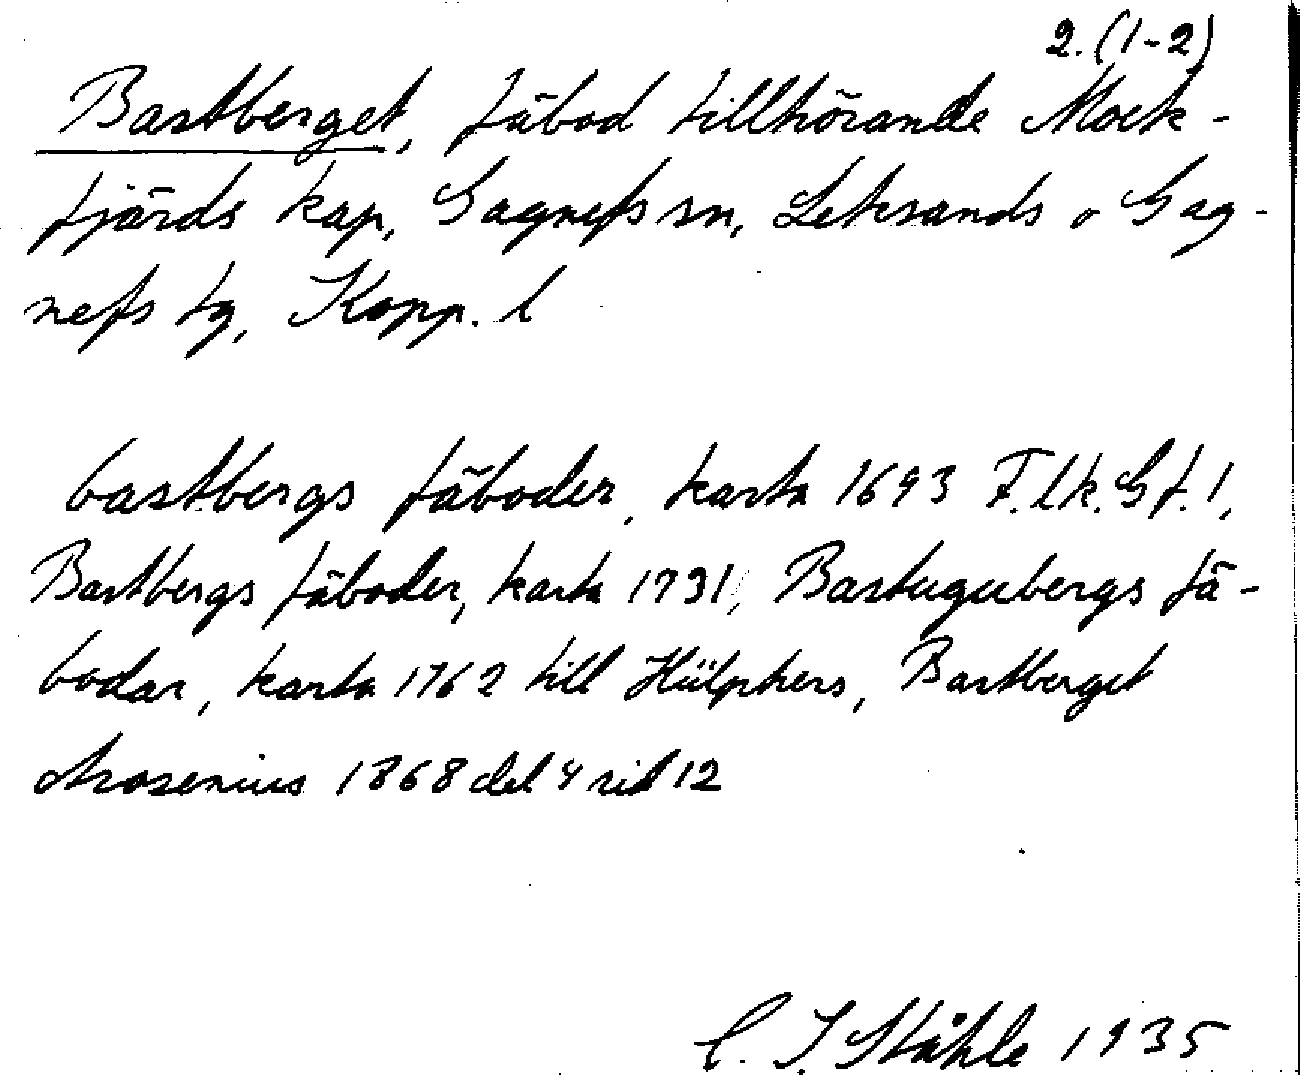 2. (1-2)
Bastberget, fäbod tillhörande Mock-
fjärds kap, Gagnefs sn, Leksands o Gag-
nefs tg, Kopp. l
bastbergs fäboder, karta 1693 F.lk.Gf.1,
Bastbergs fäboder, karta 1731, Bastugubergs fä-
bodar, karta 1762 till Hülphers, Bastberget
Arosenius 1868 del 4 sid 12
C. I. Ståhle 1935